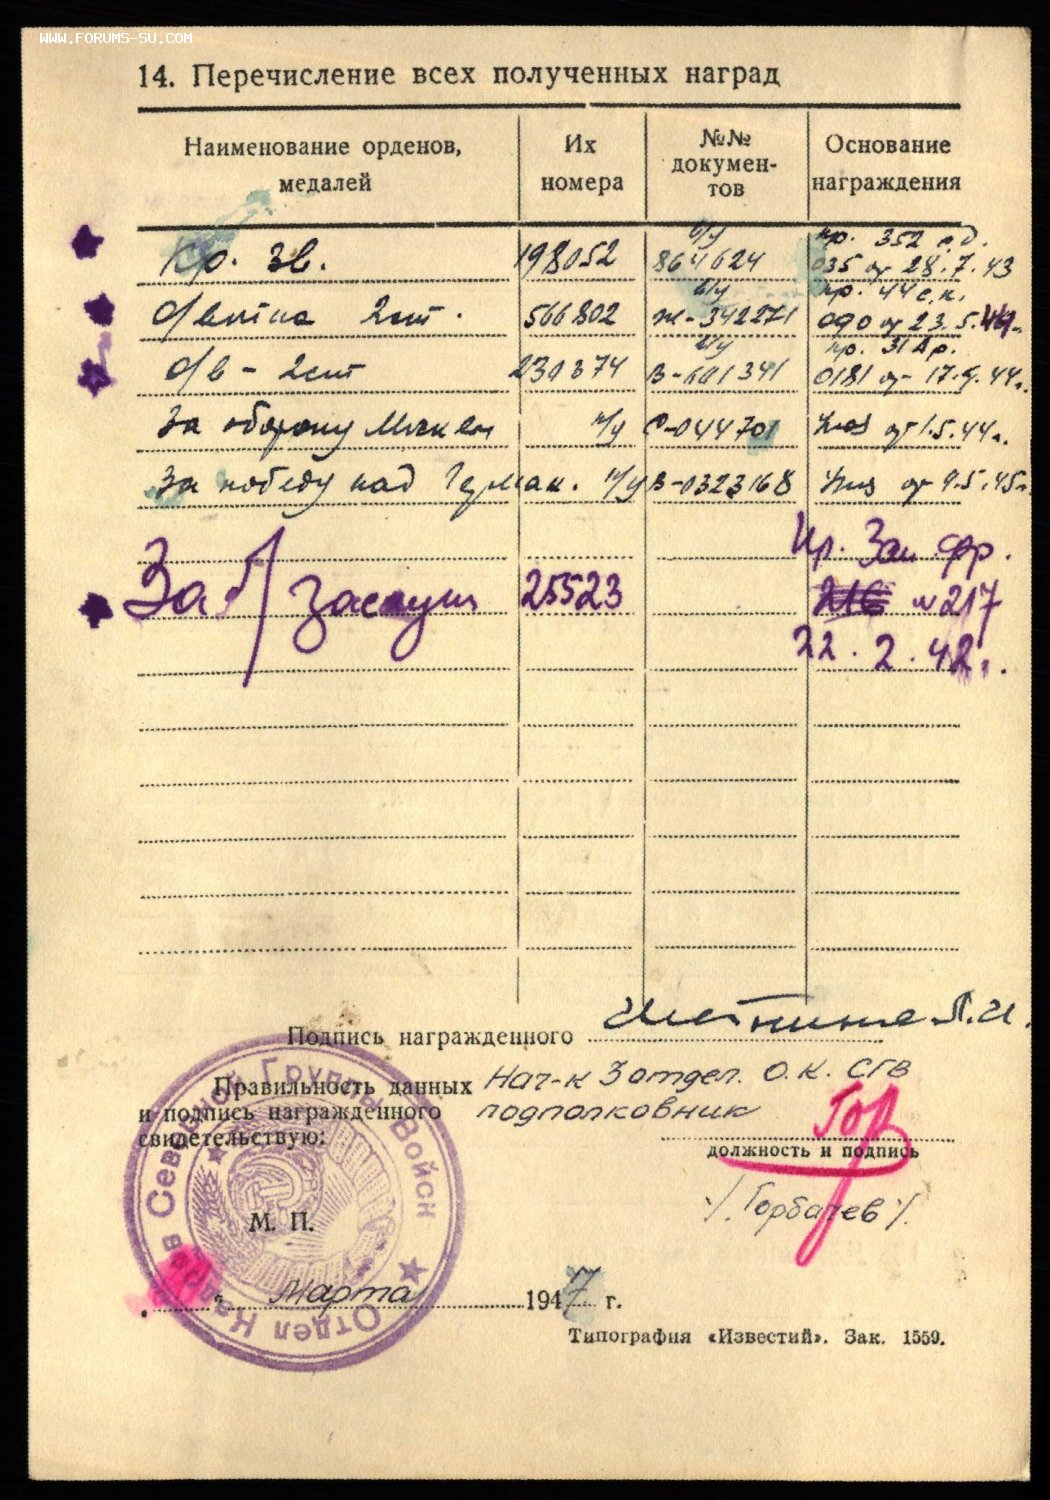 WWW.FORUMS-SU.COM
14. Перечисление всех полученных наград
Наименование орденов, медалей
Их номера
№№ докумен-тов
Основание награждения
Кр. Зв. 198052 б/у 864624 пр. 352 с.д. 035 от 28.7.43
О/войны 2 ст. 566802 в/у Ж-342271 пр. 44 с.к. 090 от 23.5.44г.
О/в - 2 ст 230374 в/у В-601341 пр. 31 Ар. 0181 от 17.9.44г.
За оборону н/у С-044701 Указ от 1.5.44г.
За победу над Герман. н/у В-0323168 Указ от 9.5.45г.
За б/заслуги 25523 Пр. Зап фр. № 217
22.2.42г.
Подпись награжденного П.И.
Правильность данных
и подпись награжденного
свидетельствую:
Нач-к 3 отдел. О.К. СГВ
подполковник
Гор
должность и подпись
/Горбачев/
М. П.
Отдел Кадров Северной Группы Войск
" Марта 1947 г.
Типография «Известий». Зак. 1559.